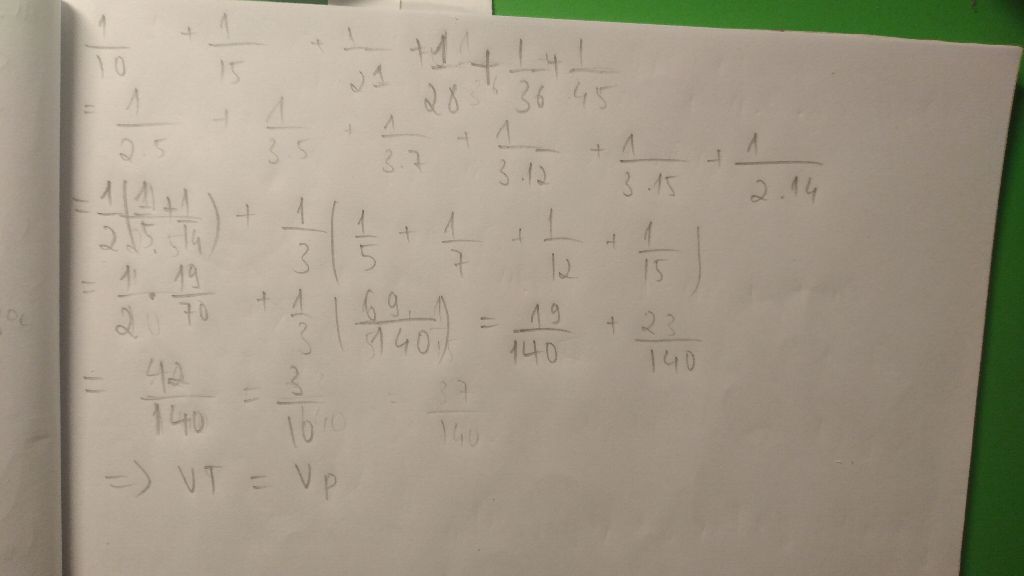 1/10 + 1/15 + 1/21 + 1/28 + 1/36 + 1/45
= 1/2.5 + 1/3.5 + 1/3.7 + 1/3.12 + 1/3.15 + 1/2.14
= 1/2 (1/5 + 1/14) + 1/3 (1/5 + 1/7 + 1/12 + 1/15)
= 1/2 . 19/70 + 1/3 (69/140) = 19/140 + 23/140
= 42/140 = 3/10 = 37/140
=> VT = VP